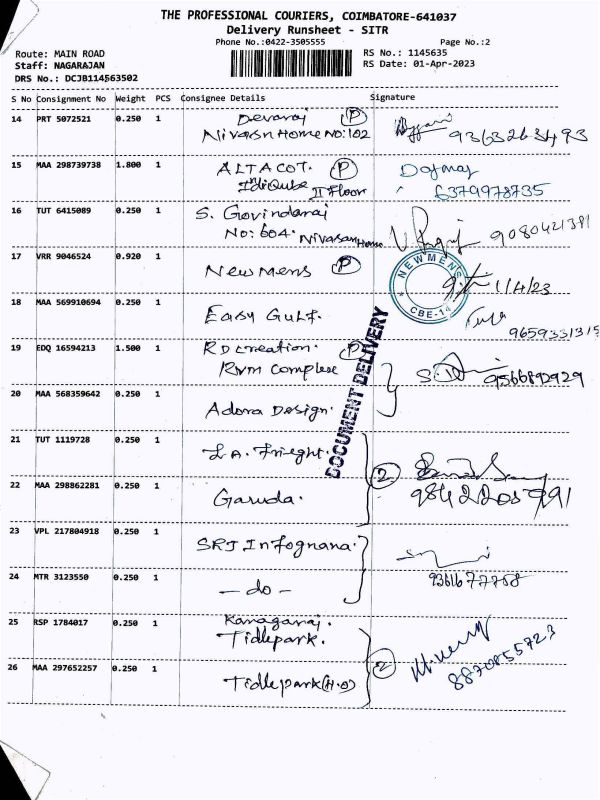 THE PROFESSIONAL COURIERS, COIMBATORE-641037
Delivery Runsheet - SITR
Phone No.:0422-3505555 Page No.:2
Route: MAIN ROAD RS No.: 1145635
Staff: NAGARAJAN RS Date: 01-Apr-2023
DRS No.: DCJB114563502
S No Consignment No Weight PCS Consignee Details Signature
14 PRT 5072521 0.250 1 Devaraj (P)
Nivasan Home No: 102 9363263493
15 MAA 298739738 1.800 1 ALTACOT. (P)
IdiQube II Floor 6379978735
16 TUT 6415089 0.250 1 S. Govindaraj
No: 604. Nivasan Home 9080421381
17 VRR 9046524 0.920 1 New Mens (P)
NEWMENS CBE-14 1/4/23
18 MAA 569910694 0.250 1 Easy Gulf.
9659331315
DOCUMENT DELIVERY
19 EDQ 16594213 1.500 1 RD creation. (P)
Rvm Complex 9566892929
20 MAA 568359642 0.250 1 Adora Design.
21 TUT 1119728 0.250 1 L.A. Frieght.
2
22 MAA 298862281 0.250 1 Garuda.
9842205991
23 VPL 217804918 0.250 1 SRJ Infognana.
24 MTR 3123550 0.250 1 - do - 9361677768
25 RSP 1784017 0.250 1 Kanagaraj.
Tidlepark.
2 8870855723
26 MAA 297652257 0.250 1 Tidlepark (H.O)